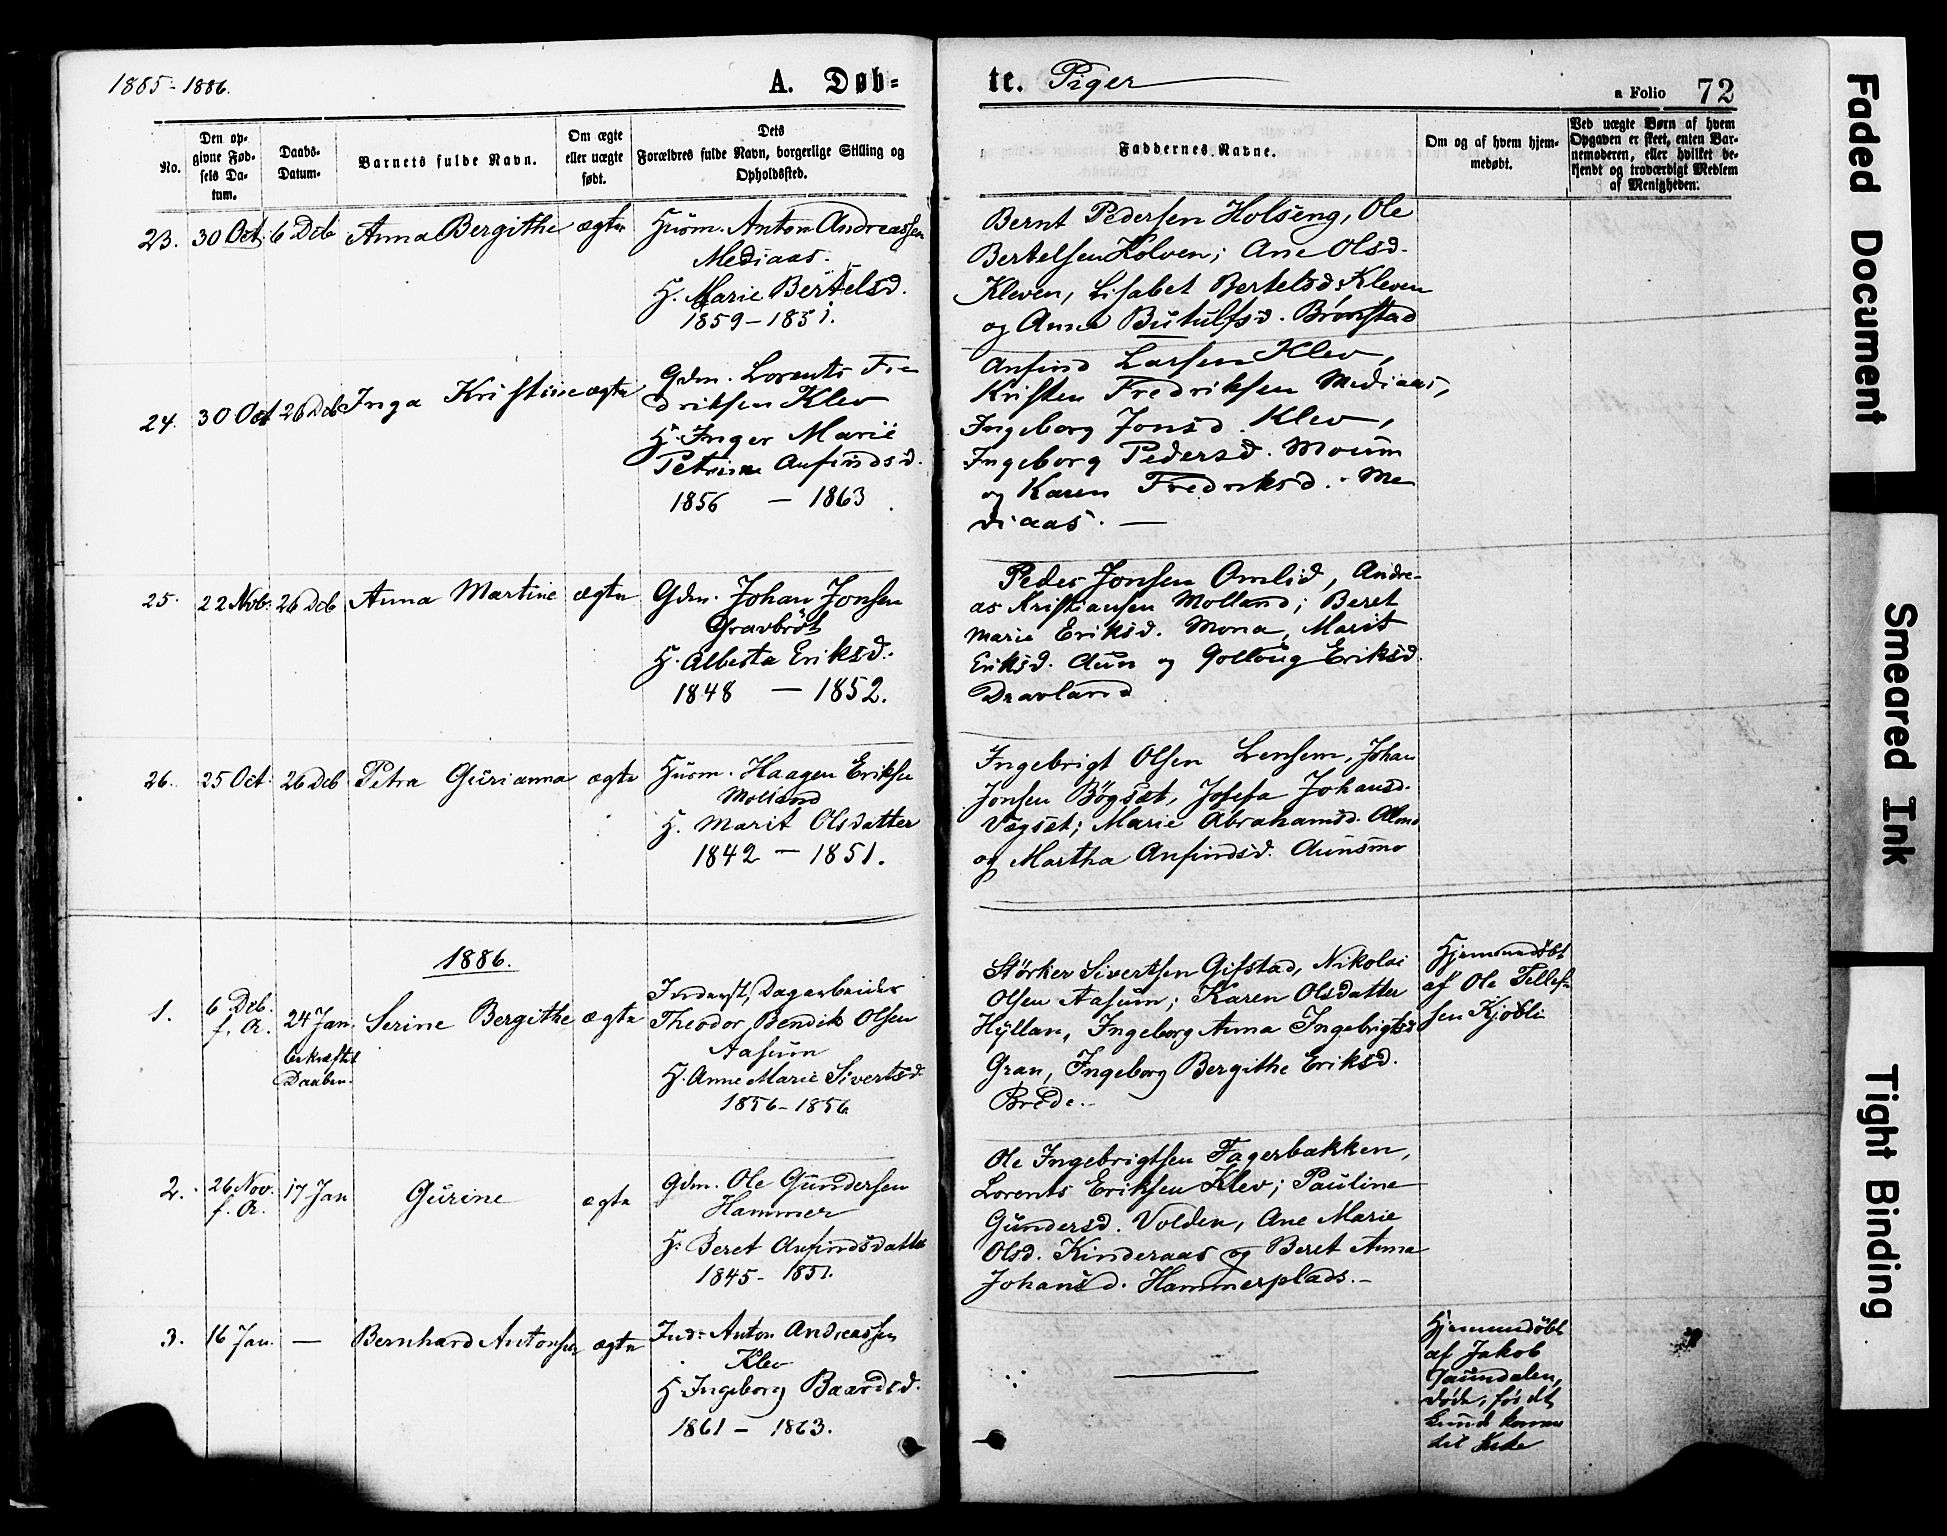 1885-1886.
A. Døb=
te. Piger
a Folio 72
No.
Den op-
givne Fød-
sels Da-
tum.
Daabs-
Datum.
Barnets fulde Navn.
Om ægte
eller uægte
født.
Dets
Forældres fulde Navn, borgerlige Stilling og
Opholdssted.
Faddernes Navne.
Om og af hvem hjem-
medøbt.
Ved uægte Børn af hvem
Opgaven er skeet, enten Bar-
nemoderen, eller hvilket be-
kjendt og troværdigt Medlem
af Menigheden.
23. 30 Oct. 6 Dcb Anna Bergithe ægte
Husm. Anton Andreassen
Mediaas.
H. Marie Bertelsd.
1859-1851.
Bernt Pedersen Holseng, Ole
Bertelsen Kolven; Ane Olsd.
Kleven, Lisabet Bertelsd. Kleven
og Anna Butulfsd. Brønstad
24. 30 Oct 26 Dcb Inga Kristine ægte
Gdm. Lorents Fre
driksen Klev
H. Inger Marie
Petrine Anfindsd.
1856 - 1863.
Anfind Larsen Klev,
Kristen Fredriksen Mediaas,
Ingeborg Jonsd. Klev,
Ingeborg Pedersd. Moum
og Karen Fredriksd. Me
diaas. —
25. 22 Nvb. 26 Dcb Anna Martine ægte
Gdm. Johan Jonsen
Gravbrøt
H. Alberta Eriksd.
1848 - 1852.
Peder Jonsen Omlid, Andre-
as Kristiansen Molland; Beret
Marie Eriksd. Mona, Marit
Eriksd. Aun og Golloug Eriksd.
Dravland
26. 25 Oct 26 Dcb Petra Gurianna ægte
Husm. Haagen Eriksen
Molland
H. Marit Olsdatter
1842 - 1851.
Ingebrigt Olsen Lensem, Johan
Jonsen Bøgset, Josefa Johansd.
Vegset; Marie Abrahamsd.
og Martha Anfindsd. Aunsmo
1886.
1. 6 Dcb.
f. A.
24 Jan.
bekræftet
Daaben.
Serine Bergithe ægte
Inderst, Dagarbeider
Theodor Bendik Olsen
Aasum
H. Anne Marie Sivertsd.
1856-1856
Størker Sivertsen Gifstad, Nikolai
Olsen Aasum; Karen Olsdatter
Hyllan, Ingeborg Anna Ingebrigtsd
Gran, Ingeborg Bergithe Eriksd.
Brede.-
Hjemmedøbt
af Ole Tellef-
sen Kjøbli
2. 26 Nov.
f. A.
17 Jan Gurine ægte
Gdm. Ole Gundersen
Hammer
H. Beret Anfindsdatter
1845- 1851.
Ole Ingebrigtsen Fagerbakken,
Lorents Eriksen Klev; Pauline
Gundersd. Volden, Ane Marie
Olsd. Kinderaas og Beret Anna
Johansd. Hammerplads.-
3. 16 Jan. — Bernhard Antonsen ægte
Ind: Anton Andreassen
Klev
H. Ingeborg Baardsd.
1861 - 1863.
Hjemmedøbt
af Jakob
Gaundalen,
døde, før det
kunde komme
til Kirke
Faded Document
Smeared Ink
Tight Binding